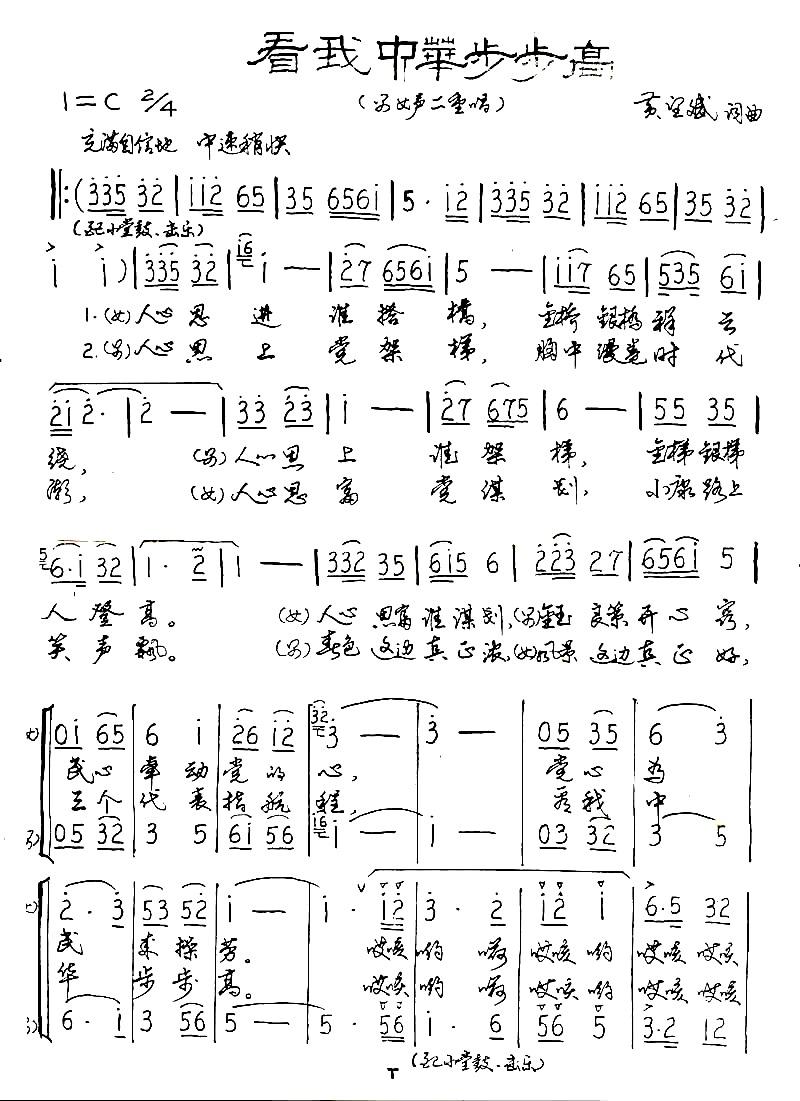 看我中华步步高
1=C 2/4 (男女声二重唱) 黄 词曲
充满自信地 中速稍快
‖:(335 32|112 65|35 6561|5· 12|335 32|112 65|35 32|
(配小堂鼓·击乐)
1 1)|335 32|16 1 —|27 6561|5 —|117 65|535 61|
1.(女)人心思进谁搭桥,金桥银桥祥云
2.(男)人心思上党架梯,胸中漫卷时代
21 2·|2 —|33 23|1 —|27 675|6 —|55 35|
绕,(男)人心思上谁架梯,金梯银梯
潮,(女)人心思富党谋划,小康路上
5 6·1 32|1· 2|1 —|332 35|615 6|223 27|6561 5|
人登高。(女)人心思富谁谋划,(男)金玉良策开心窍,
笑声飘。(男)春色这边真正浓,(女)风景这边真正好,
女 01 65|6 1|26 12|32 3 —|3 —|05 35|6 3|
民心牵动党的心,党心为
三个代表指航程,看我中
男) 05 32|3 5|61 56|16 1 —|1 —|03 32|3 5|
女 2· 3|53 52|1 —|1· 12|3· 2|12 1|6·5 32|
民来操劳。哎咳哟嗬哎咳哟哎咳哎咳
华步步高。哎咳哟嗬哎咳哟哎咳哎咳
男) 6· 1|3 56|5 —|5· 56|1· 6|56 5|3·2 12|
(配小堂鼓·击乐)